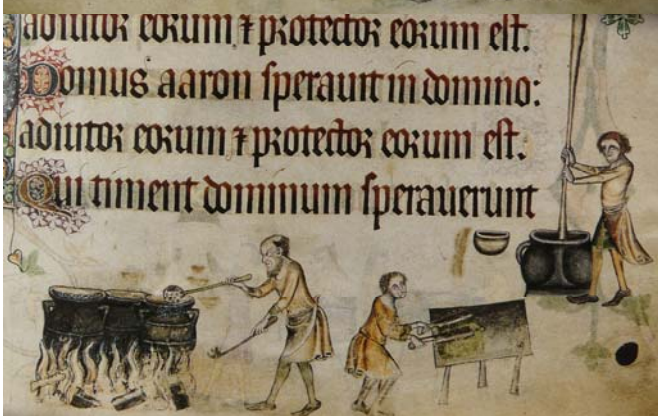 adiutor eorum ⁊ protector eorum est.
Domus aaron sperauit in domino:
adiutor eorum ⁊ protector eorum est.
Qui timent dominum sperauerunt